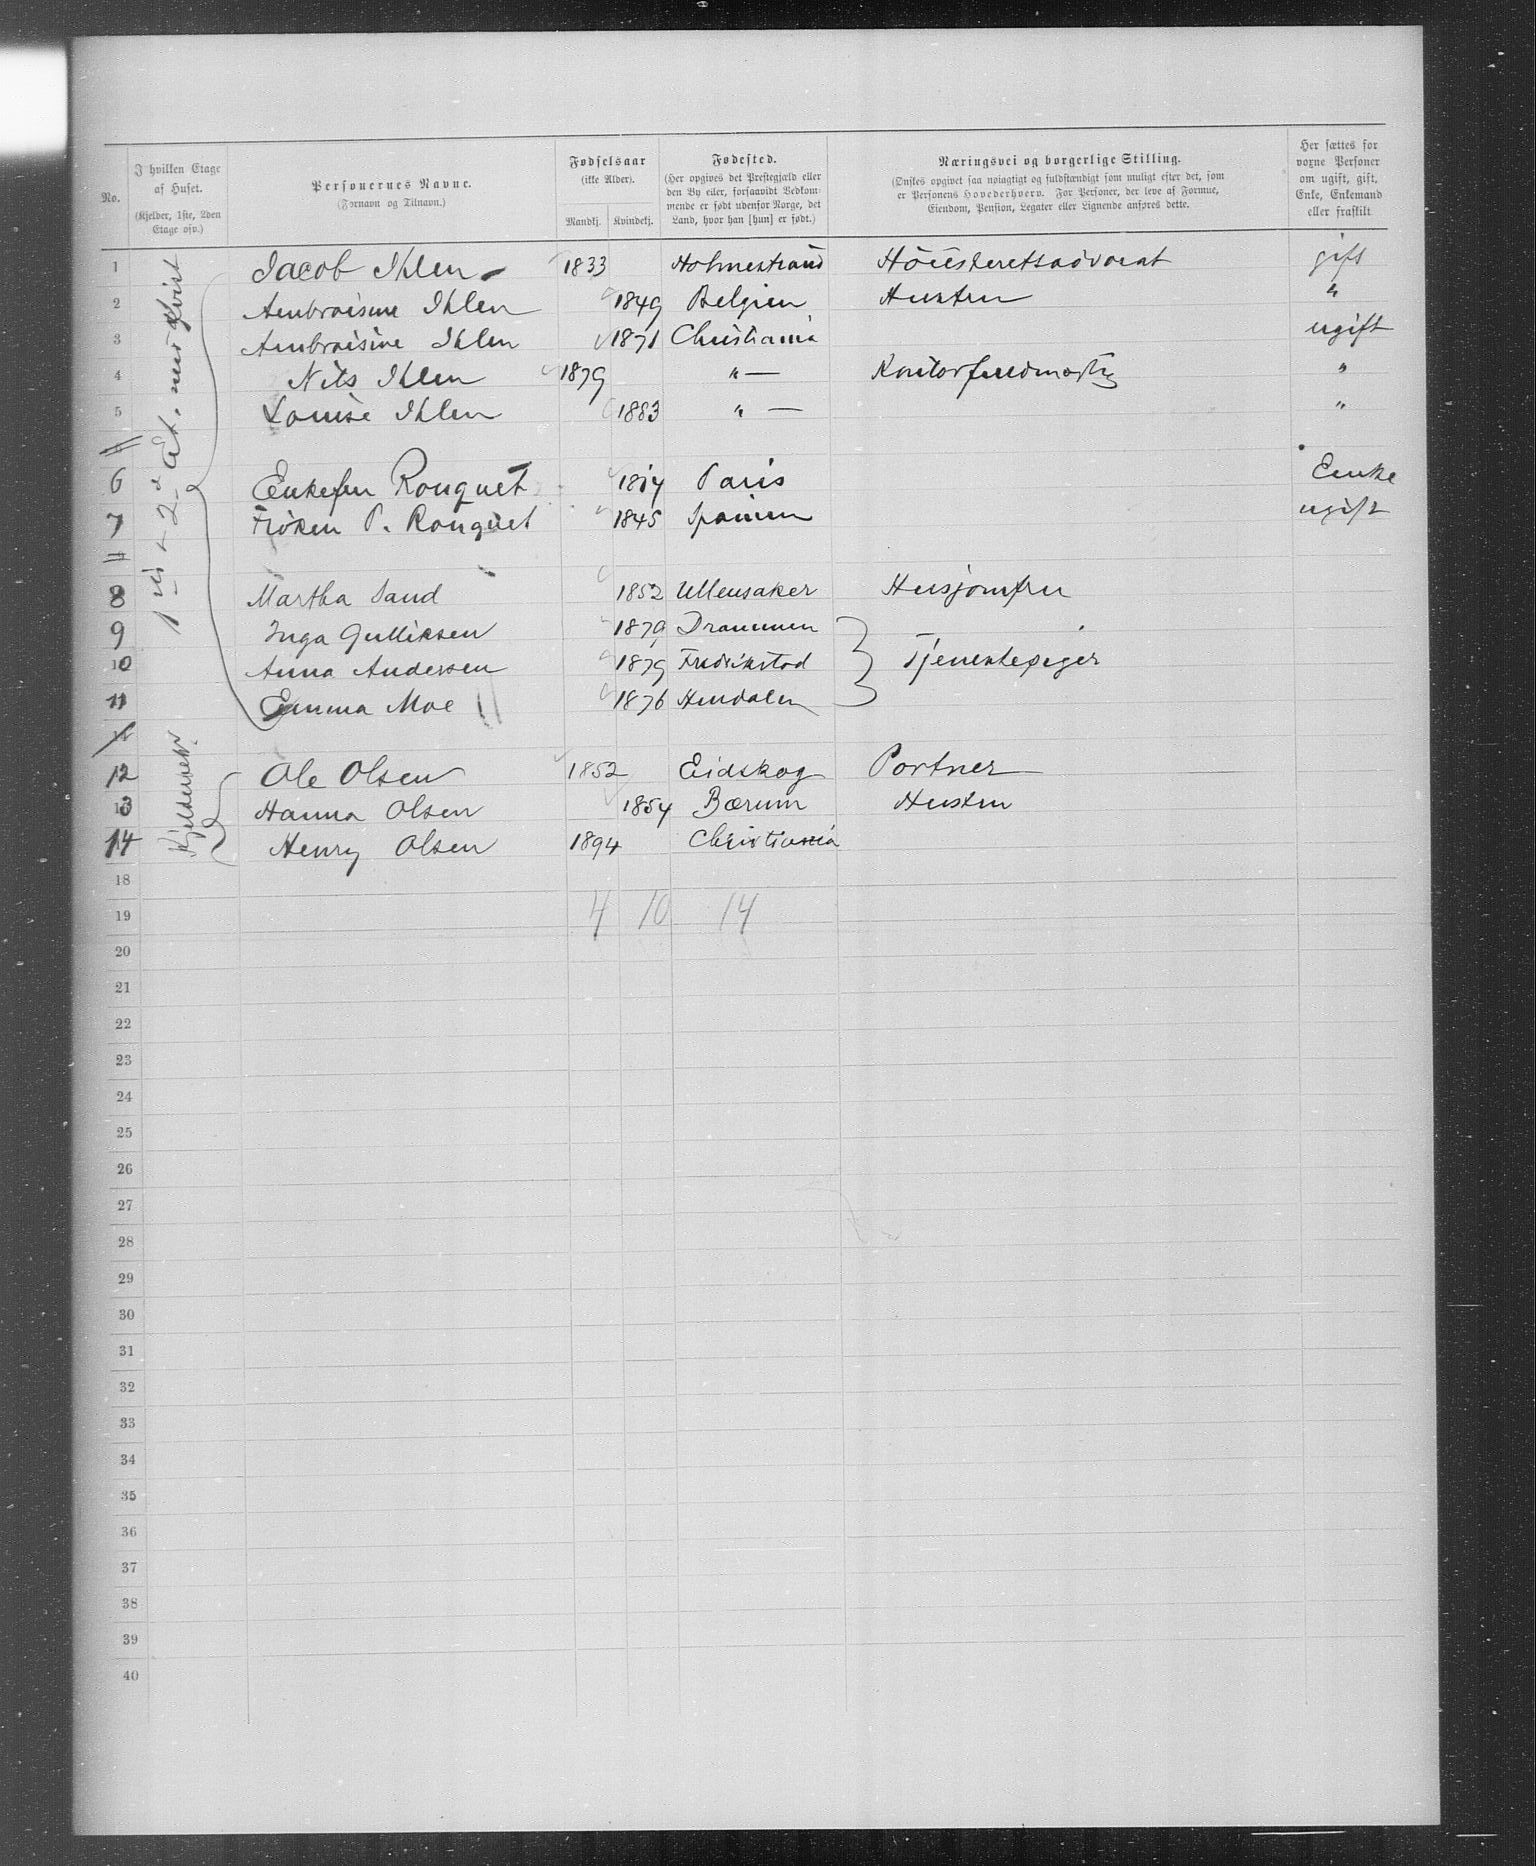 No.
I hvilken Etage af Huset.
(Kjelder, 1ste, 2den Etage osv.)
Personernes Navne.
(Fornavn og Tilnavn.)
Fødselsaar
(ikke Alder).
Mandkj. Kvindekj.
Fødested.
(Her opgives det Prestegjæld eller den By eller, forsaavidt Vedkommende er født udenfor Norge, det Land, hvor han [hun] er født.)
Næringsvei og borgerlige Stilling.
(Ønskes opgivet saa nøiagtigt og fuldstændigt som muligt efter det, som er Personens Hovederhverv. For Personer, der leve af Formue, Eiendom, Pension, Legater eller Lignende anføres dette.
Her sættes for voxne Personer om ugift, gift, Enke, Enkemand eller fraskilt
1 Jacob Ihlen 1833 Holmestrand Höiesteretsadvocat gift
2 Ambroisine Ihlen 1849 Belgien Hustru "
3 Ambroisine Ihlen 1871 Christiania ugift
4 Nils Ihlen 1879 " — Kontorfuldmægtig "
5 Louise Ihlen 1883 " — "
6 Enkefru Rouquet 1814 Paris Enke
7 Frøken P. Rouquet 1845 Spanien ugift
8 Martha Sand 1852 Ullensaker Husjomfru
9 Inga Gulliksen 1879 Drammen
10 Anna Andersen 1879 Fredrikstad Tjenestepiger
11 Emma Moe 1876
12 Ole Olsen 1852 Eidskog Portner
13 Hanna Olsen 1854 Bærum Hustru
14 Henry Olsen 1894 Christiania
18
19 4 10 14
20
21
22
23
24
25
26
27
28
29
30
31
32
33
34
35
36
37
38
39
40